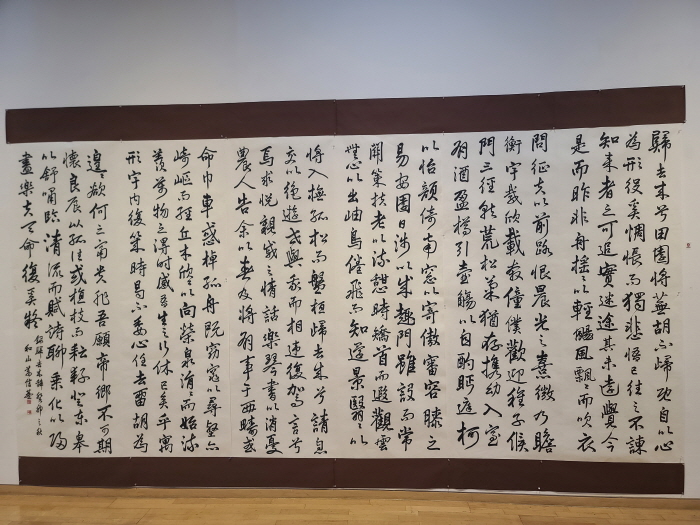 歸去來兮田園將蕪胡不歸既自以心
為形役奚惆悵而獨悲悟已往之不諫
知來者之可追實迷途其未遠覺今
是而昨非舟搖〻以輕颺風飄〻而吹衣
問征夫以前路恨晨光之熹微乃瞻
衡宇載欣載奔僮僕歡迎稚子候
門三徑就荒松菊猶存攜幼入室
有酒盈樽引壺觴以自酌眄庭柯
以怡顏倚南窓以寄傲審容膝之
易安園日涉以成趣門雖設而常
關策扶老以流憩時矯首而遐觀雲
無心以出岫鳥倦飛而知還景翳〻以
將入撫孤松而盤桓歸去來兮請息
交以絕遊世與我而相違復駕言兮
焉求悅親戚之情話樂琴書以消憂
農人告余以春及將有事于西疇或
命巾車或棹孤舟既窈窕以尋壑亦
崎嶇而經丘木欣〻以向榮泉涓〻而始流
羨萬物之得時感吾生之行休已矣乎寓
形宇內復幾時曷不委心任去留胡為
遑〻欲何之富貴非吾願帝鄉不可期
懷良辰以孤往或植杖而耘耔登東皋
以舒嘯臨清流而賦詩聊乘化以歸
盡樂夫天命復奚疑
錄歸去來辭癸卯之秋
和山